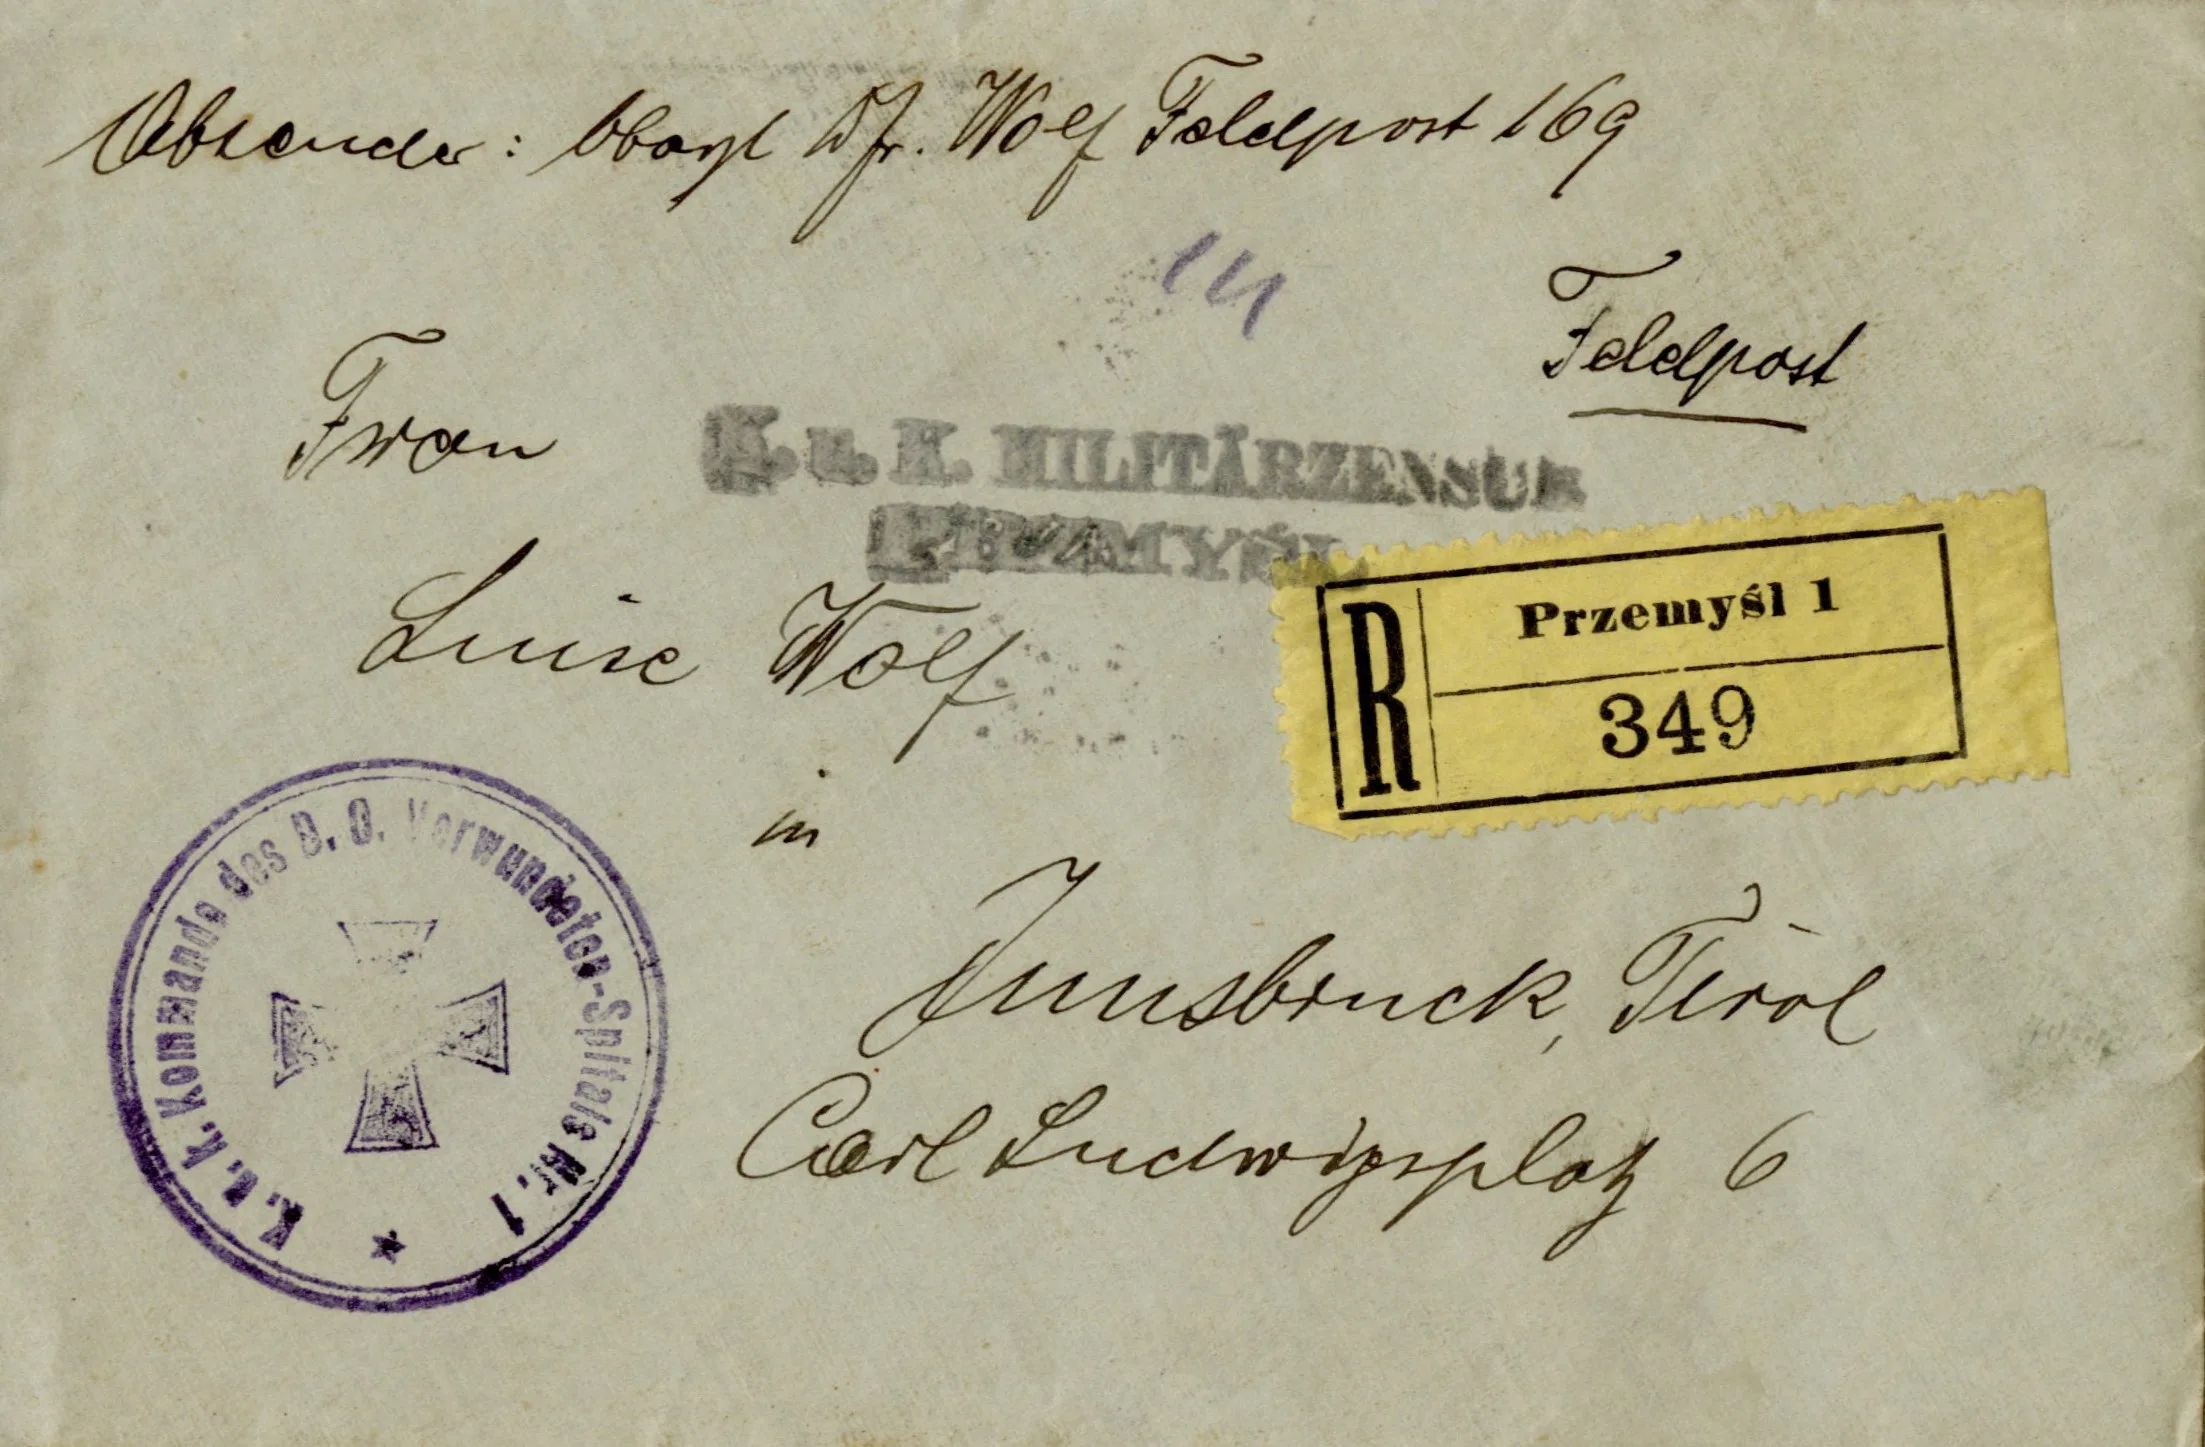 Absender: Obarzt Dr. Wolf Feldpost 169
Feldpost
Frau
K. u. K. MILITÄRZENSUR
PRZEMYŚL
Luise Wolf
R
Przemyśl 1
349
in
Innsbruck, Tirol
Carl Ludwigsplatz 6
K. u. k. Kommando des D. O. Verwundeten-Spitals Nr. 1